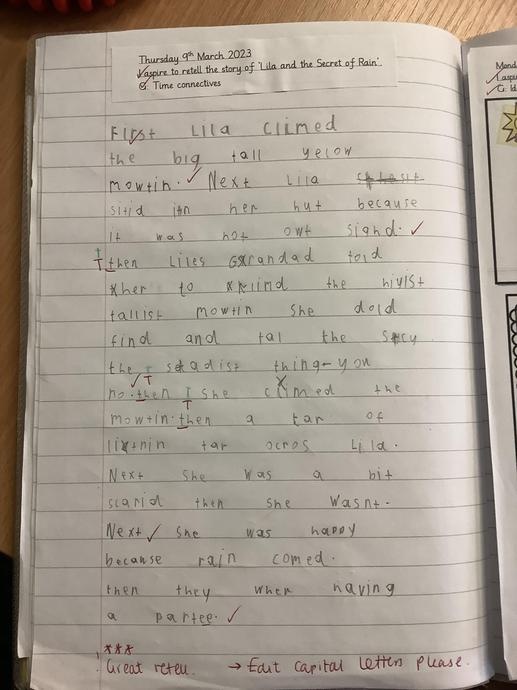 Thursday 9th March 2023
I aspire to retell the story of 'Lila and the Secret of Rain'.
G: Time connectives
First Lila climed
the big tall yelow
mowtin. Next Lila
sitid itn her hut because
it was hot owt sighd.
then Liles Grandad told
her to kliind the hivist
tallist mowtin she dold
find and tal the Scy
the sadist thing you
no. then she climed the
mowtin. then a tar of
litnin tar ocros Lila.
Next she was a bit
scarid then she wasnt.
Next she was happy
because rain comed.
then they wher having
a partee.
Great retell. → Edit capital letters please.
Mond